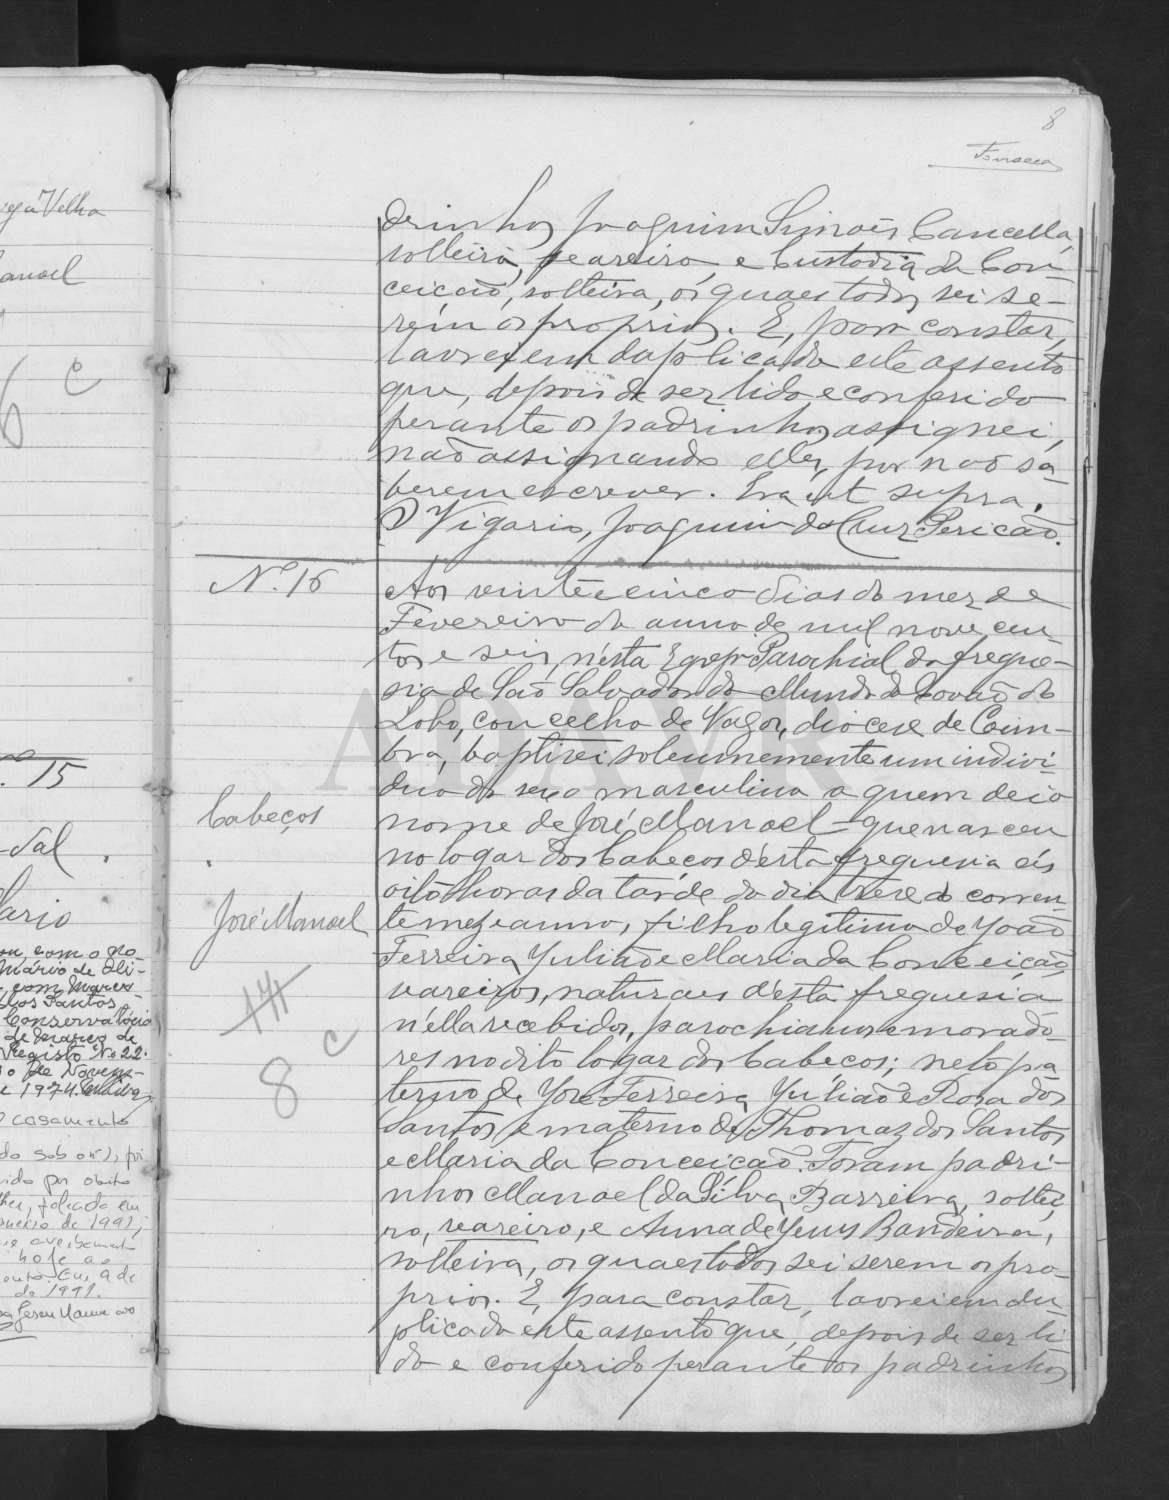 ega Velha
anoel
6 c
. 15
Sal.
ario
Mário de Oli-
com
dos Santos
Conservatória
de Março de
Registo Nº 22.
de Novem-
e 1974.
o casamento
do sob o nº 1, foi
vido por obito
lher, falecida em
de 1991,
hoje ao
Em, 9 de
de 1991.
8
Fonseca
drinhos Joaquim Simões Cancella,
solteiro, seareiro, e Custodia da Con-
ceição, solteira, os quaes todos sei se-
rem os proprios. E, para constar,
lavrei em duplicado este assento
que, depois de ser lido e conferido
perante os padrinhos assignei,
não assignando elles, por não sa-
berem escrever. Era ut supra.
O Vigario, Joaquim da Cruz Pericão.
N.º 16
Cabeços
José Manoel
14
8 c
Aos vinte e cinco dias do mez de
Fevereiro do anno de mil nove cen-
tos e seis, n'esta Egreja Parochial da fregue-
sia de São Salvador do Mundo do Covão do
Lobo, concelho de Vagos, diocese de Coim-
bra, baptisei solemnemente um indivi-
duo do sexo masculino a quem dei o
nome de José Manoel – que nasceu
no logar dos Cabeços d'esta freguesia ás
oito horas da tarde do dia treze do corren-
te mez e anno, filho legitimo de João
Ferreira Julião e Maria da Conceição,
seareiros, naturaes d'esta freguesia
n'ella recebidos, parochianos e morado-
res no dito logar dos Cabeços; neto pa-
terno de José Ferreira Julião e Rosa dos
Santos e materno de Thomaz dos Santos
e Maria da Conceição. Foram padri-
nhos Manoel da Silva Barreira, soltei-
ro, seareiro, e Anna de Jesus Bandeira,
solteira, os quaes todos sei serem os pro-
prios. E, para constar, lavrei em du-
plicado este assento que, depois de ser li-
do e conferido perante os padrinhos
ADAVR